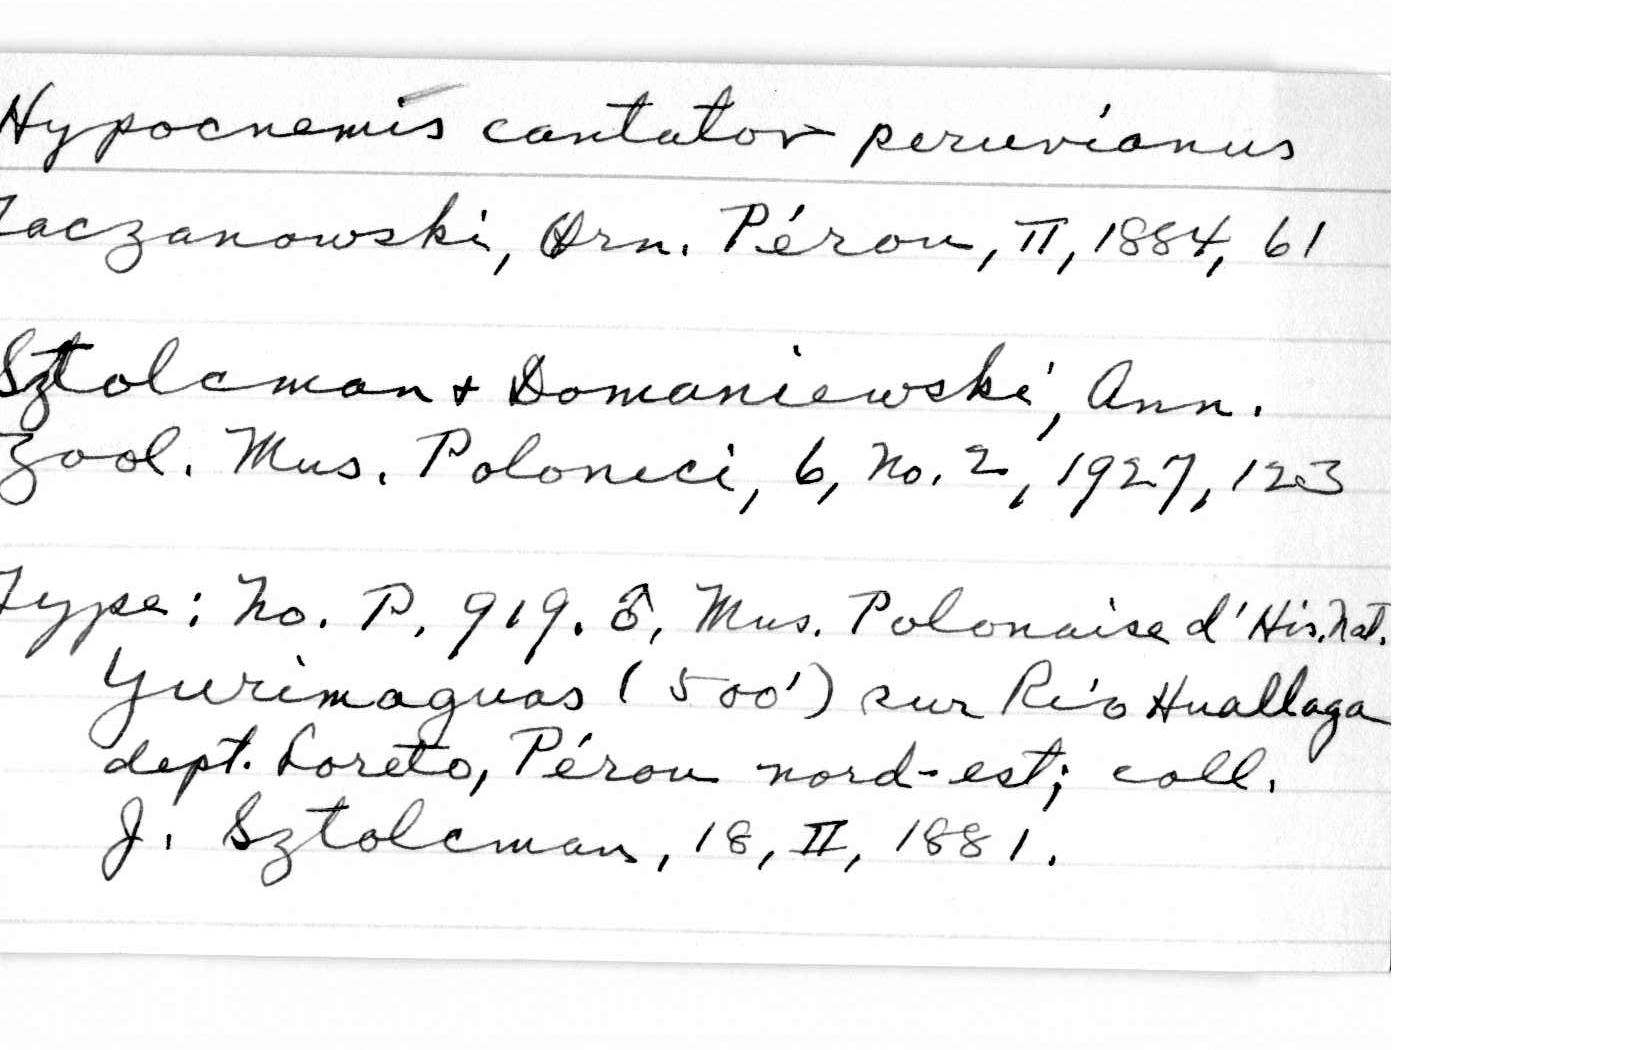 Hypocnemis cantator peruvianus
Taczanowski, Orn. Pérou, II, 1884, 61
Sztolcman + Domaniewski, Ann.
Zool. Mus. Polonici, 6, No. 2, 1927, 123
Type: No. P. 919. ♂, Mus. Polonaise d'His. Nat.
Yurimaguas (500') sur Río Huallaga
dept. Loreto, Pérou nord-est; coll.
J. Sztolcman, 18, II, 1881.